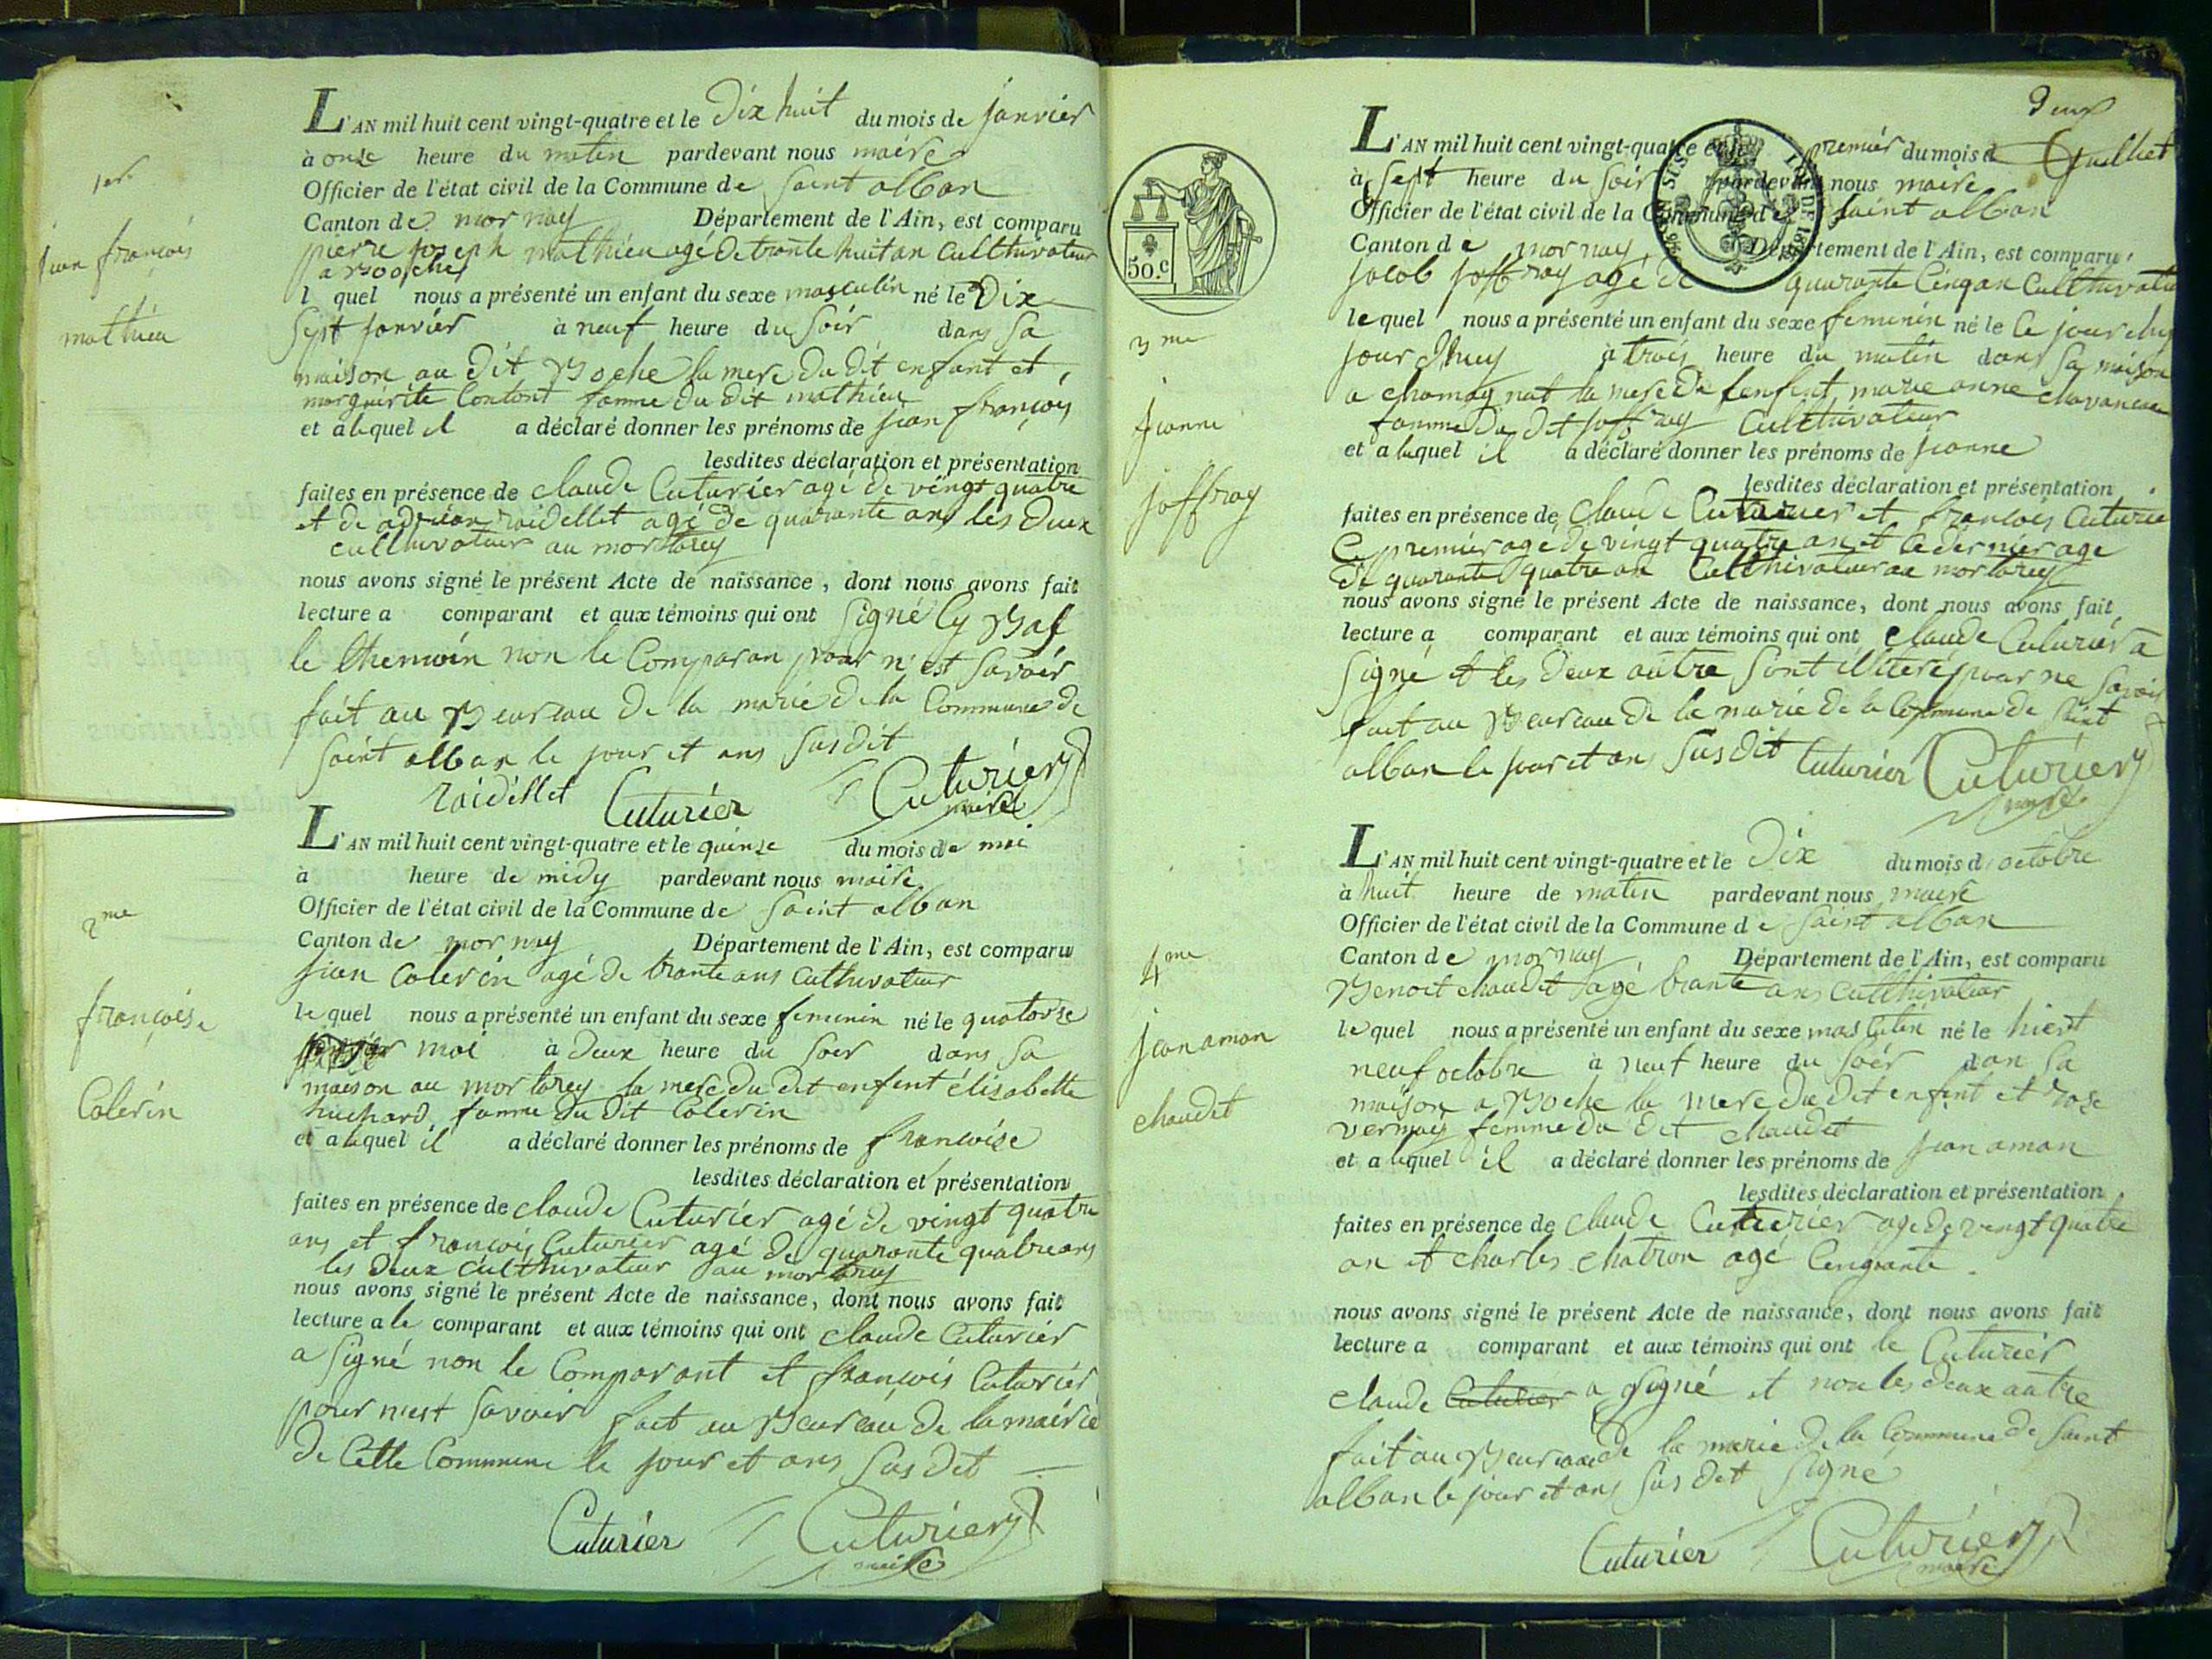 1er
jean françois
mathieu
L'AN mil huit cent vingt-quatre et le Dix huit du mois de janvier
à onze heure du matin pardevant nous maire
Officier de l'état civil de la Commune de saint alban
Canton de mornay Département de l'Ain, est comparu
pierre joseph mathieu agé de trante huit an Culthivateur
a Boche
l quel nous a présenté un enfant du sexe masculin né le Dix
sept janvier à neuf heure du soir dans sa
maison au dit Boche la mere du dit enfant et
marguerite Contont famme du dit mathieu
et alequel il a déclaré donner les prénoms de jean françois
lesdites déclaration et présentation
faites en présence de claude Cuturier agé de vingt quatre
et de adrien raidellet agé de quarante ans les deux
culthivateur au mortarey
nous avons signé le présent Acte de naissance, dont nous avons fait
lecture a comparant et aux témoins qui ont signé Cy Bas
le themoin non le Comparan pour n'est savoir
fait au Beureau de la marie de la Commune de
saint alban le jour et ans susdit
raidellet Cuturier Cuturier
maire
2me
françoise
Colerin
L'AN mil huit cent vingt-quatre et le quinze du mois de mai
à heure de midy pardevant nous maire
Officier de l'état civil de la Commune de saint alban
Canton de mornay Département de l'Ain, est comparu
jean Colerin agé de trante ans cultivateur
le quel nous a présenté un enfant du sexe feminin né le quatorze
mai à deux heure du soir dans sa
maison au mortarey la mere du dit enfent élisabette
huchard famme du dit Colerin
et a lequel il a déclaré donner les prénoms de françoise
lesdites déclaration et présentation
faites en présence de claude Cuturier agé de vingt quatre
ans et françois Cuturier agé de quarante quatre ans
les deux cultthivateur au mortarey
nous avons signé le présent Acte de naissance, dont nous avons fait
lecture a le comparant et aux témoins qui ont claude Cuturier
a signé non le Comparant et françois Cuturier
pour n'est savoir fait au Beureau de la mairie
de Cette Commune le jour et ans sus dit
Cuturier Cuturier
maire
Deux
50.C
3me
jeanne
joffray
L'AN mil huit cent vingt-quatre et le premier du mois d juilliet
à sept heure du soir pardevant nous maire
Officier de l'état civil de la Commune de saint alban
Canton de mornay Département de l'Ain, est comparu
jacob joffray agé de quarante Cinq an Cultthivateur
le quel nous a présenté un enfant du sexe feminin né le Ce jourdhuy
jour dhuy à trois heure du matin dans sa maison
a chamagnat la mere de l'enfent marie anne
famme du dit joffray Culthivateur
et a lequel il a déclaré donner les prénoms de jeanne
lesdites déclaration et présentation
faites en présence de claude Cuturier et françois Cuturier
Ce premier agé de vingt quatre an et le dernier age
de quarante quatre an Cultthivateur au mortarey
nous avons signé le présent Acte de naissance, dont nous avons fait
lecture a comparant et aux témoins qui ont claude Cuturier a
signé et les deux autre sont pour ne savoir
fait au Beureau de la marie de la Commune de saint
alban le jour et ans susdit Cuturier Cuturier
maire
4me
jean aman
chaudet
L'AN mil huit cent vingt-quatre et le Dix du mois d octobre
à huit heure de matin pardevant nous maire
Officier de l'état civil de la Commune de saint alban
Canton de mornay Département de l'Ain, est comparu
Benoit chaudet agé trante ans Cultthivateur
le quel nous a présenté un enfant du sexe masculin né le hiert
neuf octobre à neuf heure du soir dan sa
maison a Boche la mere du dit enfent et rose
vernay femme du dit chaudet
et a lequel il a déclaré donner les prénoms de jean aman
lesdites déclaration et présentation
faites en présence de claude Cuturier age de vingt quatre
an et charles chatron agé Cinquante
nous avons signé le présent Acte de naissance, dont nous avons fait
lecture a comparant et aux témoins qui ont le Cuturier
claude Cuturier a signé et non les deux autre
fait au Beureau de la marie de la Commune de saint
alban le jour et ans sus dit signé
Cuturier Cuturier
maire